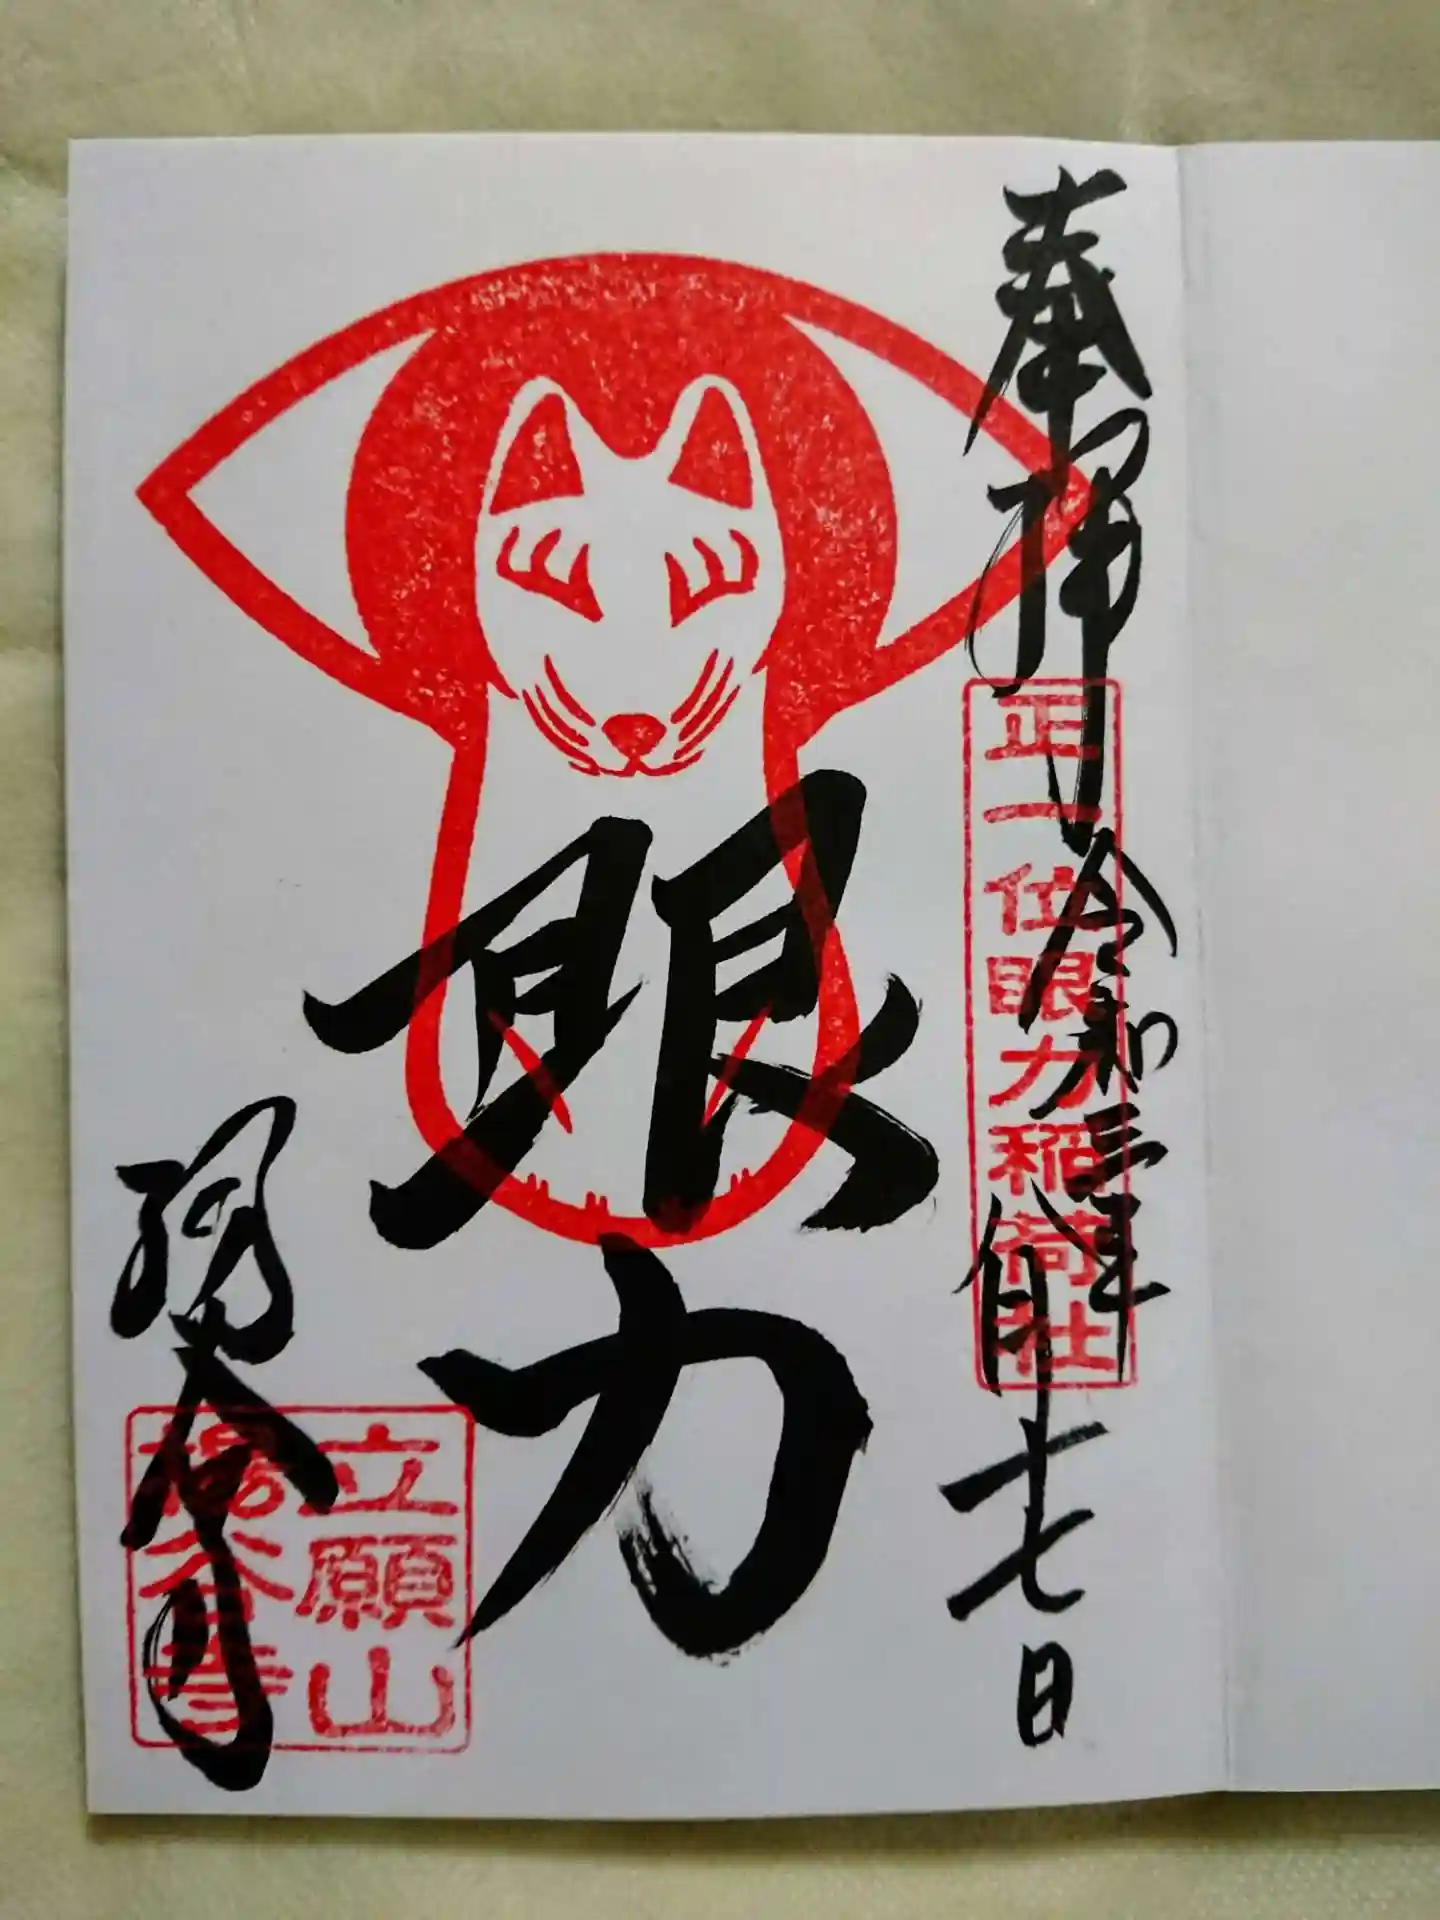 奉拝
令和三年
八月十七日
正一位眼力稲荷社
眼力
立願山
楊谷寺
楊谷寺